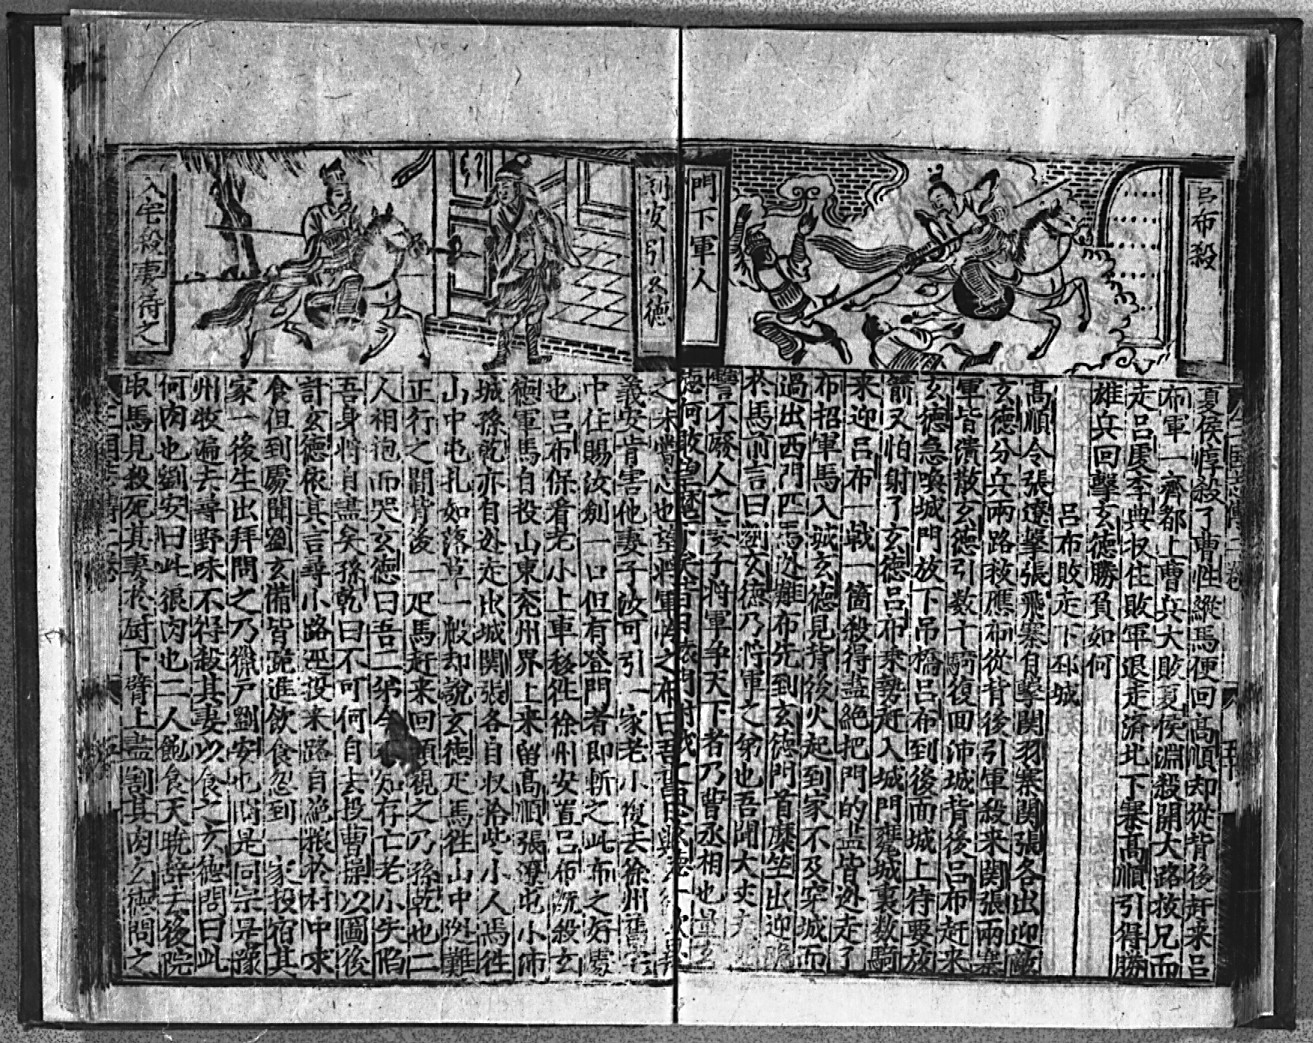 呂布殺
門下軍人
劉安引玄德
入宅殺妻待之
夏侯惇殺了曹性縱馬便回高順却從背後赶来呂
布軍一齊都上曹兵大敗夏侯淵殺開大路救兄而
走呂虔李典収住敗軍退走済北下寨高順引得勝
雄兵回擊玄德勝負如何
呂布敗走下邳城
高順令張遼擊張飛寨自擊関羽寨関張各出迎敵
玄德分兵兩路救應布從背後引軍殺来関張兩寨
軍皆潰散玄德引数十騎復回沛城背後呂布赶来
玄德急喚城門放下吊橋呂布到後面城上待要放
箭又怕射了玄德呂布乗勢赶入城門甕城裏数騎
来迎呂布一戟一箇殺得盡絶把門的盡皆迯走了
布招軍馬入城玄德見背後火起到家不及穿城而
過出西門匹馬迯難布先到玄德門首糜竺出迎
於馬前言曰劉玄德乃將軍之弟也吾聞大丈夫
讐不廢人之妻子將軍争天下者乃曹丞相也
德何敢
之未嘗忘也望將軍怜之布曰吾
義安肯害他妻子汝可引一家老小復去徐州
中住賜汝劍一口但有登門者即斬之此布之好處
也呂布併看老小上車移徃徐州安置呂布既殺玄
德軍馬自投山東兖州界上来留高順張遼屯小沛
城孫乾亦自迯走出城関張各自収拾些小人馬徃
山中屯扎如落草一般却說玄德疋馬徃山中迯難
正行之間背後一疋馬赶来回頭視之乃孫乾也二
人相抱而哭玄德曰吾二弟今存亡老小失陷
吾身將自盡矣孫乾曰不可何自去投曹操以圖後
計玄德依其言尋小路逕投来路自絶粮於村中求
食但到處聞劉玄德皆跪進飲食忽到一家投宿其
家一後生出拜問之乃獵戶劉安也聞是同宗是豫
州牧遍去尋野味不得殺其妻以食之玄德問曰此
何肉也劉安曰此狼肉也二人飽食天曉辞去後院
取馬見殺死其妻於厨下臂上盡割其肉玄德問之